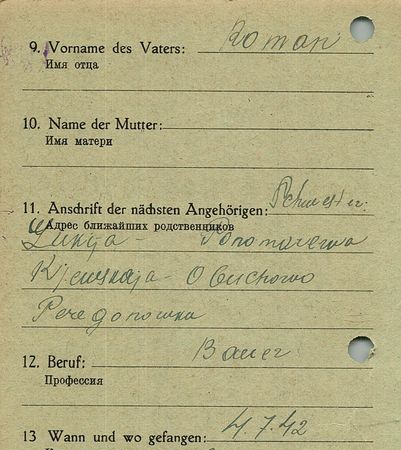 9. Vorname des Vaters: Roman
Имя отца
10. Name der Mutter:
Имя матери
11. Anschrift der nächsten Angehörigen: Schwester
Адрес ближайших родственников
Ponomarewa
Obuchowo
12. Beruf: Bauer
Профессия
13 Wann und wo gefangen: 4.7.42